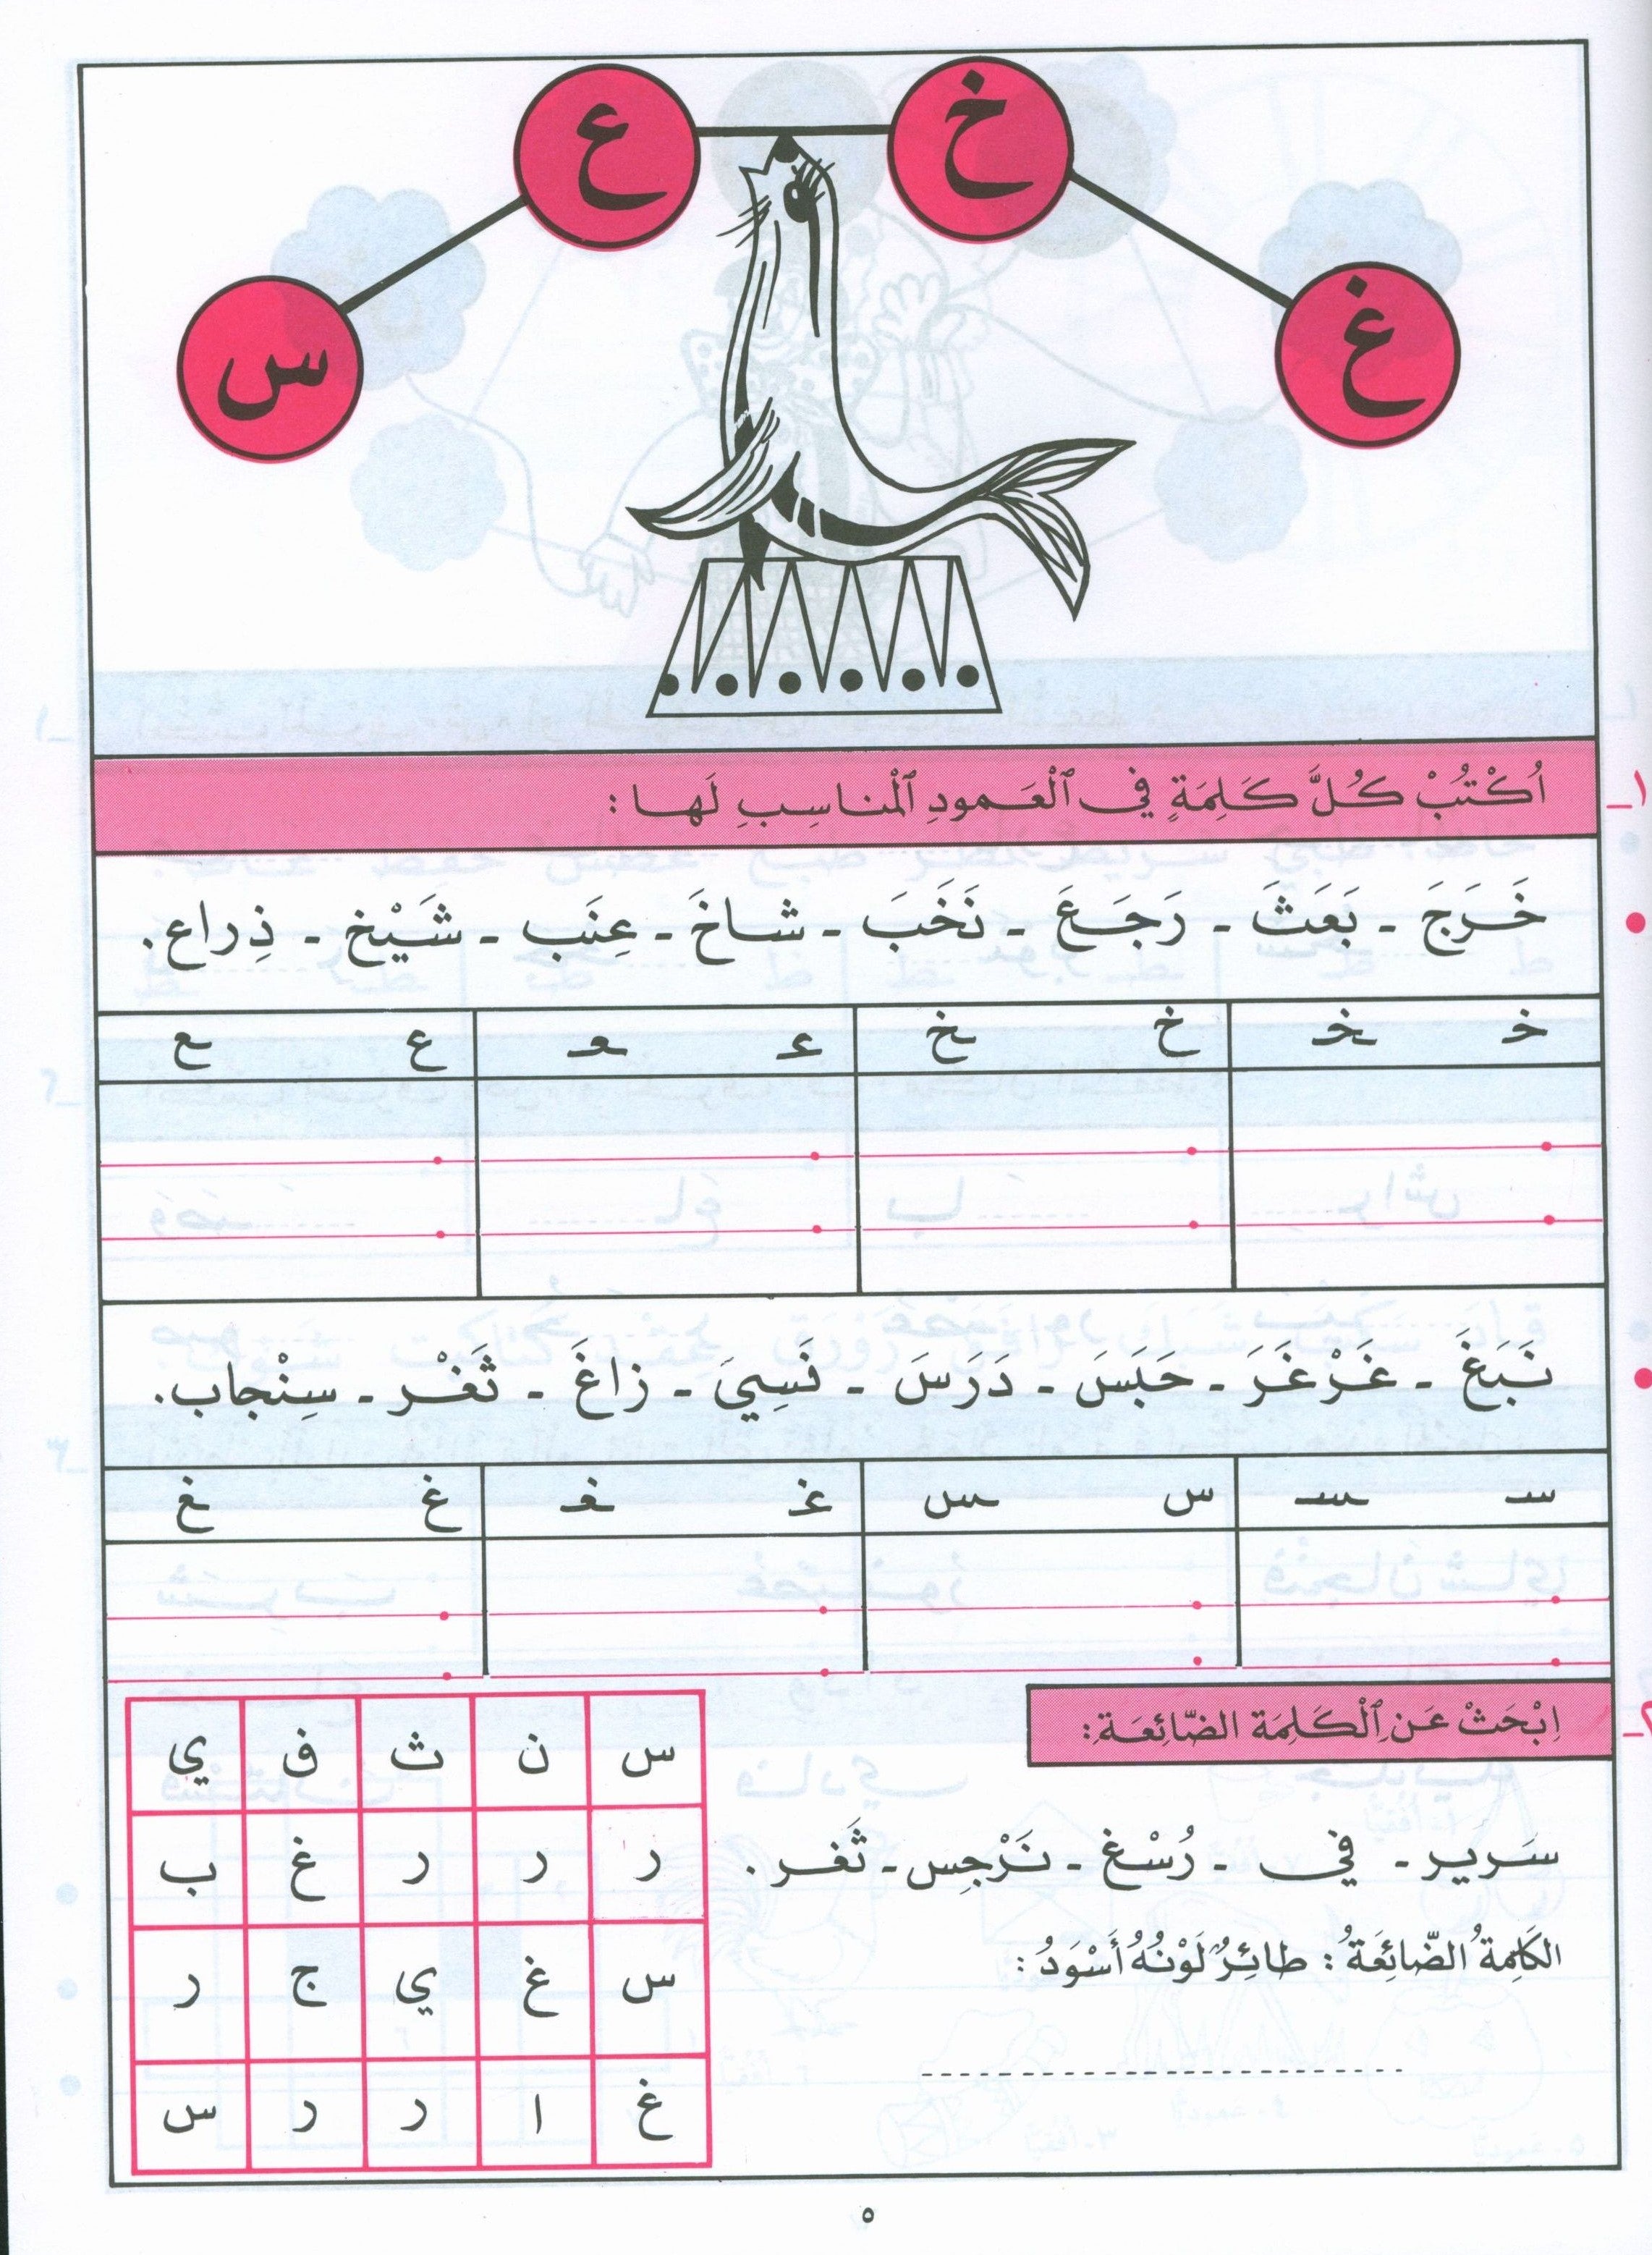 ع خ
س غ
١ـ اُكْتُبْ كُلَّ كَلِمَةٍ فِي ٱلْعَمودِ ٱلْمُناسِبِ لَها :
خَرَجَ - بَعَثَ - رَجَعَ - نَخَبَ - شاخَ - عِنَب - شَيْخ - ذِراع .
خـ ـخـ خ ـخ عـ ـعـ ع ـع
نَبَغَ - غَرْغَرَ - حَبَسَ - دَرَسَ - نَسِيَ - زاغَ - ثَغْر - سِنْجاب .
سـ ـسـ س ـس غـ ـغـ غ ـغ
٢ـ اِبْحَثْ عَنِ ٱلْكَلِمَة الضّائِعَة:
سَرير - في - رُسْغ - نَرْجِس - ثَغر .
الكَلِمةُ الضّائِعَةُ : طائِرٌ لَوْنُهُ أَسْوَدُ :
س ن ث ف ي
ر ر ر غ ب
س غ ي ج ر
غ ا ر ر س
٥